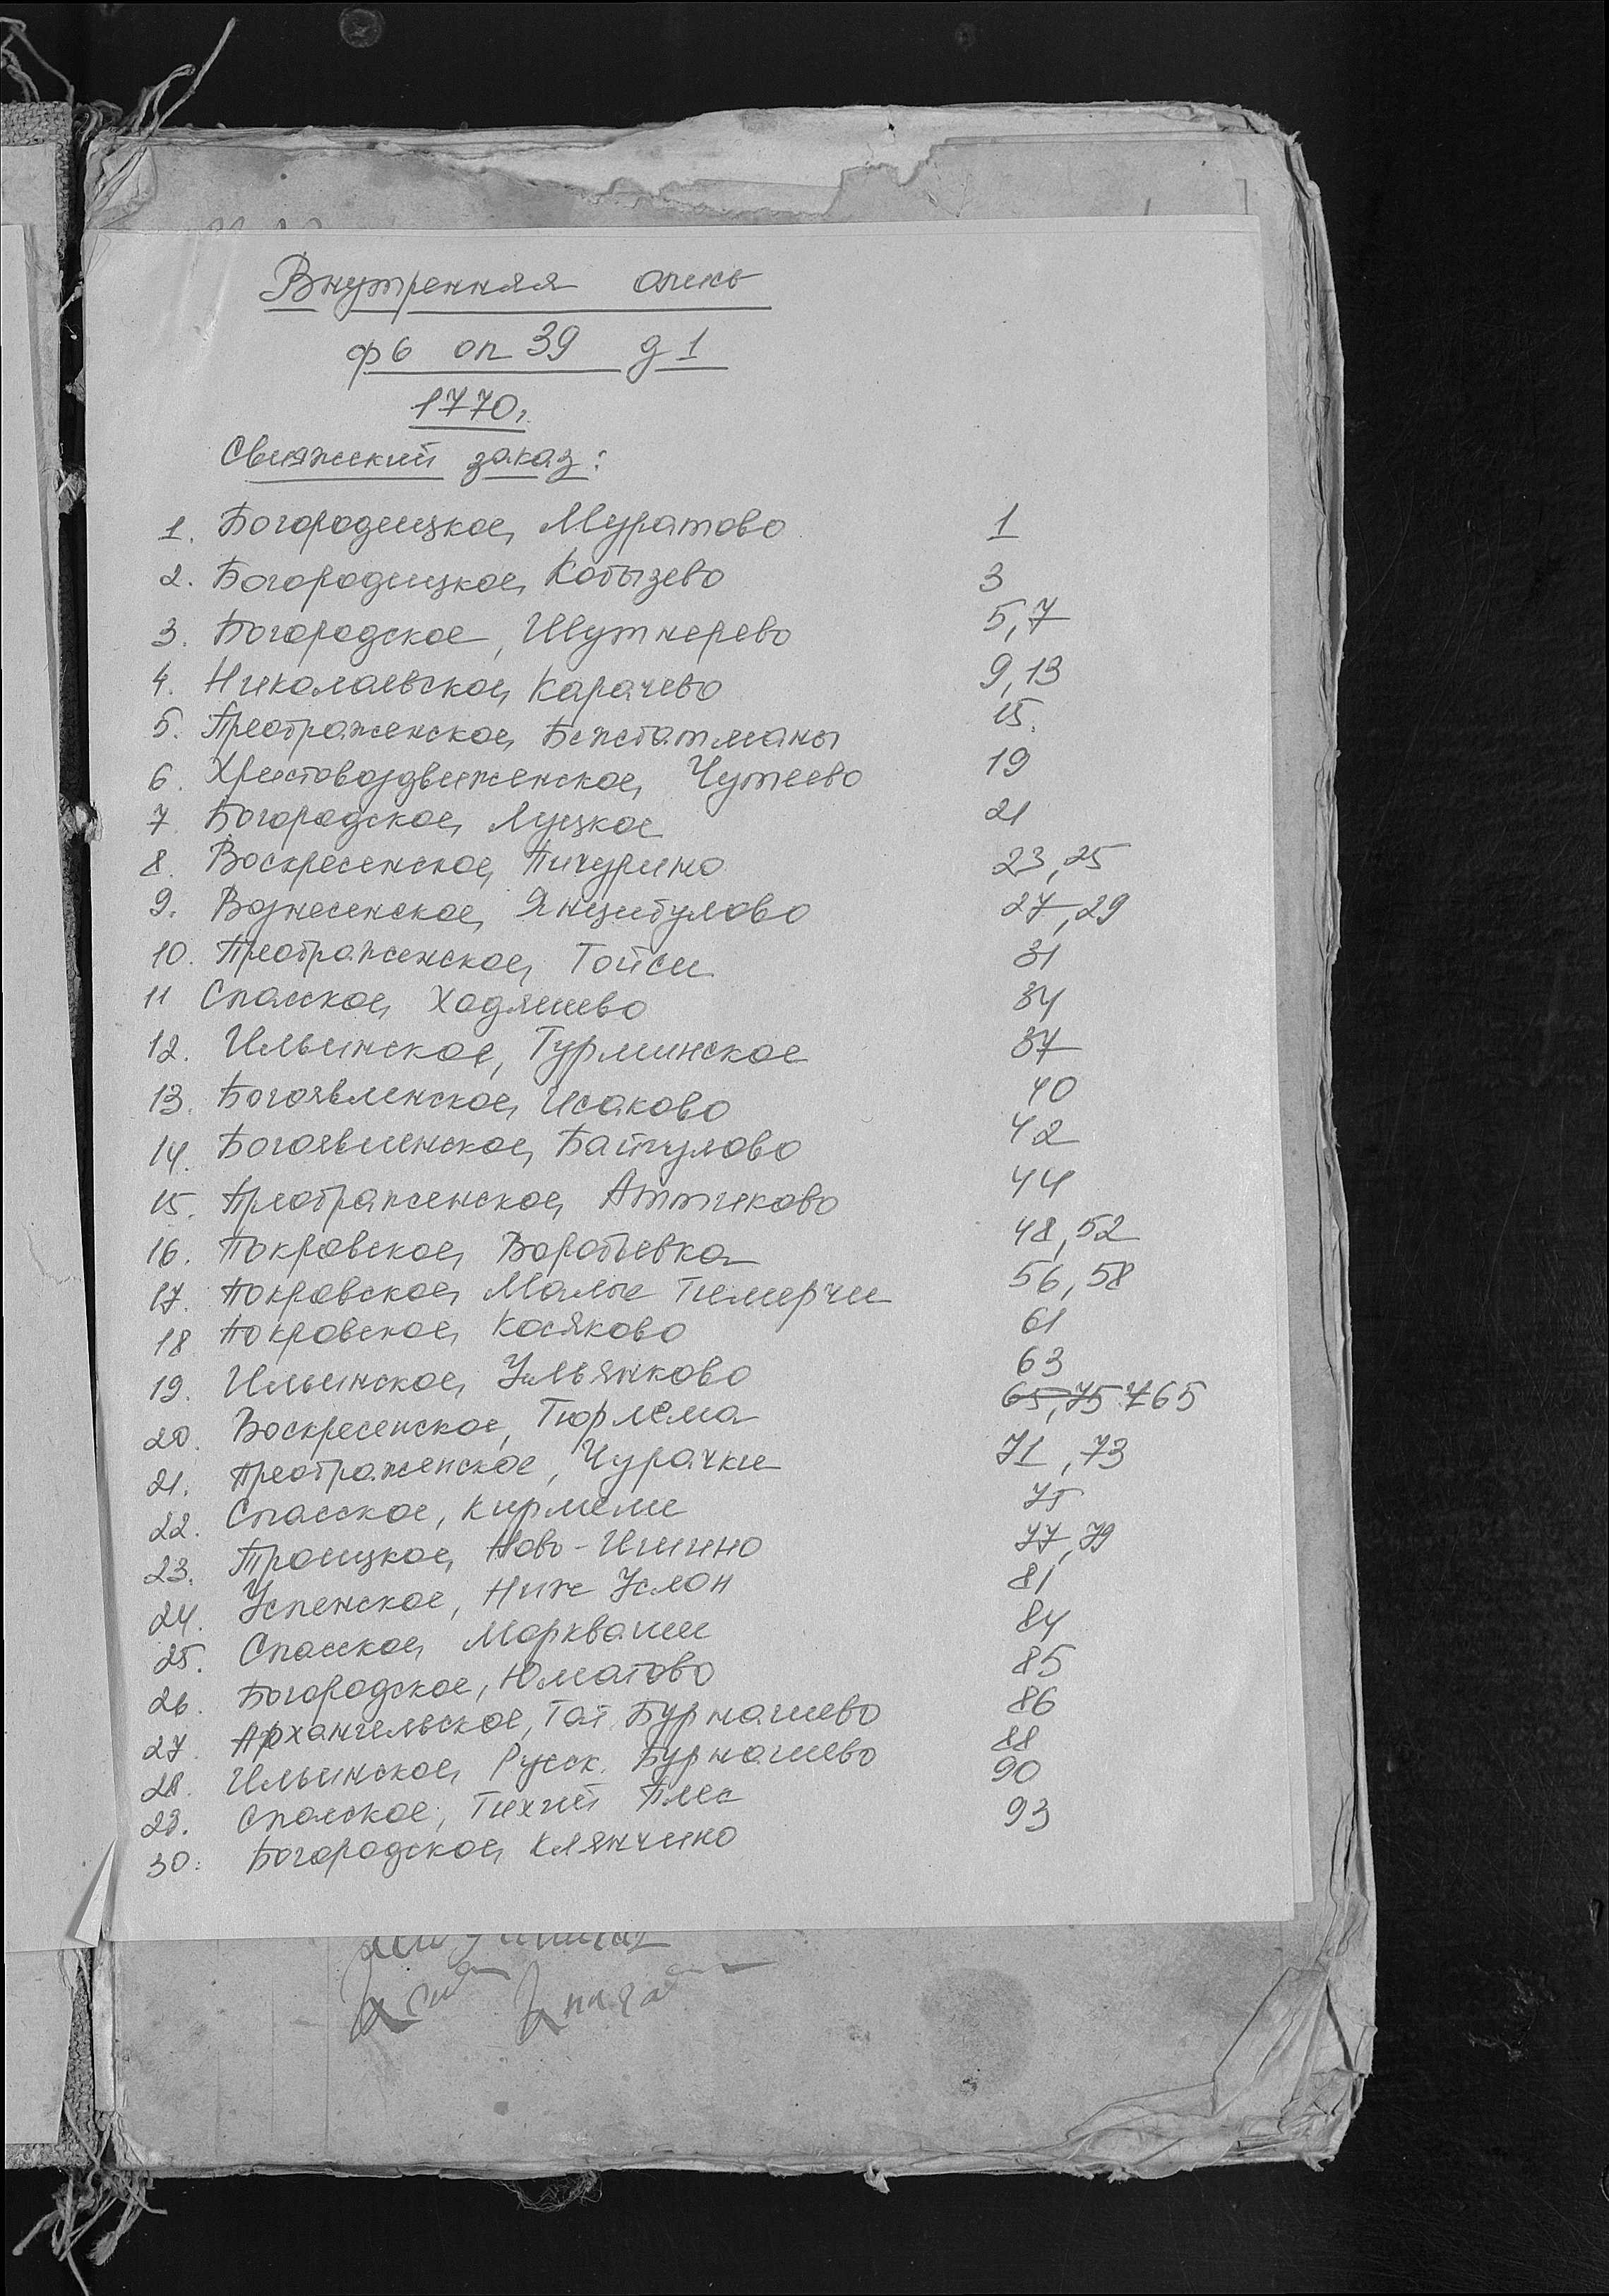 Внутренняя опись
ф 6 оп 39 д 1
1770 г.
Свияжский заказ:
1. Богородицкое, Муратово 1
2. Богородицкое, Кобызево 3
3. Богородское, Шутнерево 5, 7
4. Николаевское, Карачево 9, 13
5. Преображенское, Бижбатманы 15.
6. Хрестовоздвиженское, Чутеево 19
7. Богородское, Луцкое 21
8. Воскресенское, Пичурино 23, 25
9. Вознесенское, Янцибулово 27, 29
10. Преображенское, Тойси 31
11 Спасское, Ходяшево 34
12. Ильинское, Турминское 37
13. Богоявленское, Исаково 40
14. Богоявленское, Байгулово 42
15. Преображенское, Аттиково 44
16. Покровское, Воробьевка 48, 52
17. Покровское, Малые Тимерчи 56, 58
18 Покровское, Косяково 61
19. Ильинское, Ульянково 63
20. Воскресенское, Тюрлема 65, 75 765
21. Преображенское, Чурачки 71, 73
22. Спасское, Кирмели 75
23. Троицкое, Ново-Ишино 77, 79
24. Успенское, Ниж Услон 81
25. Спасское, Моркваши 84
26. Богородское, Юматово 85
27. Архангельское, Тат. Бурнашево 86
28. Ильинское, Русск. Бурнашево 88
29. Спасское, Тихий Плес 90
30. Богородское, Клянчино 93